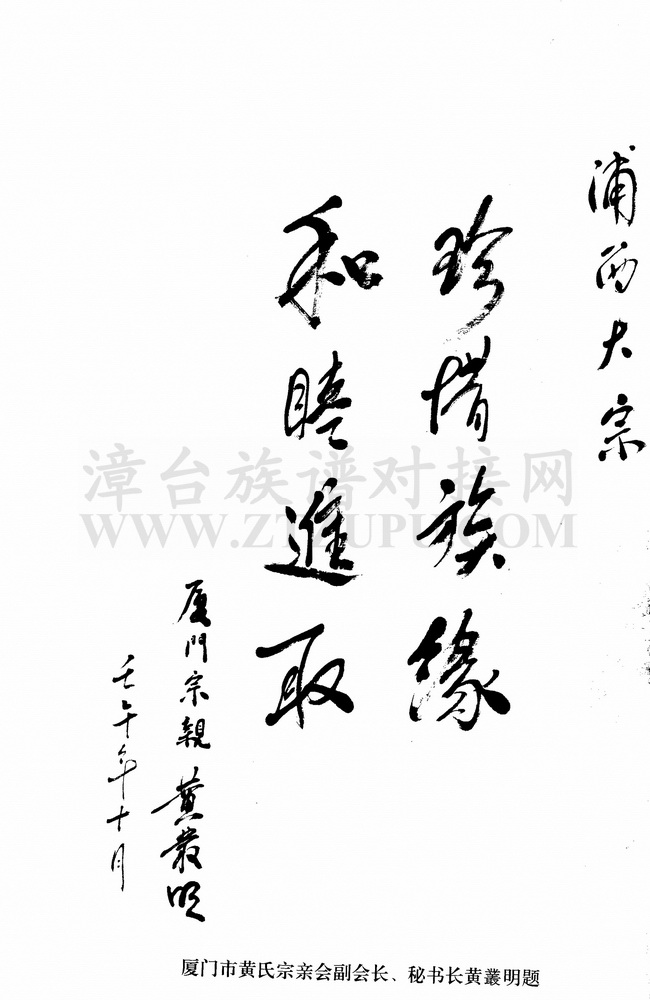 浦西大宗
珍惜族缘
和睦進取
厦門宗親 黄叢明
壬午年十月
漳台族谱对接网
WWW.ZTZUPU.COM
厦门市黄氏宗亲会副会长、秘书长黄叢明题